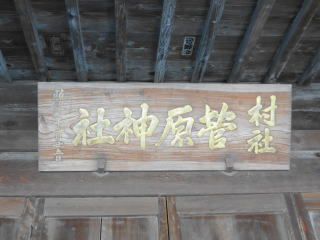 村社
菅原神社